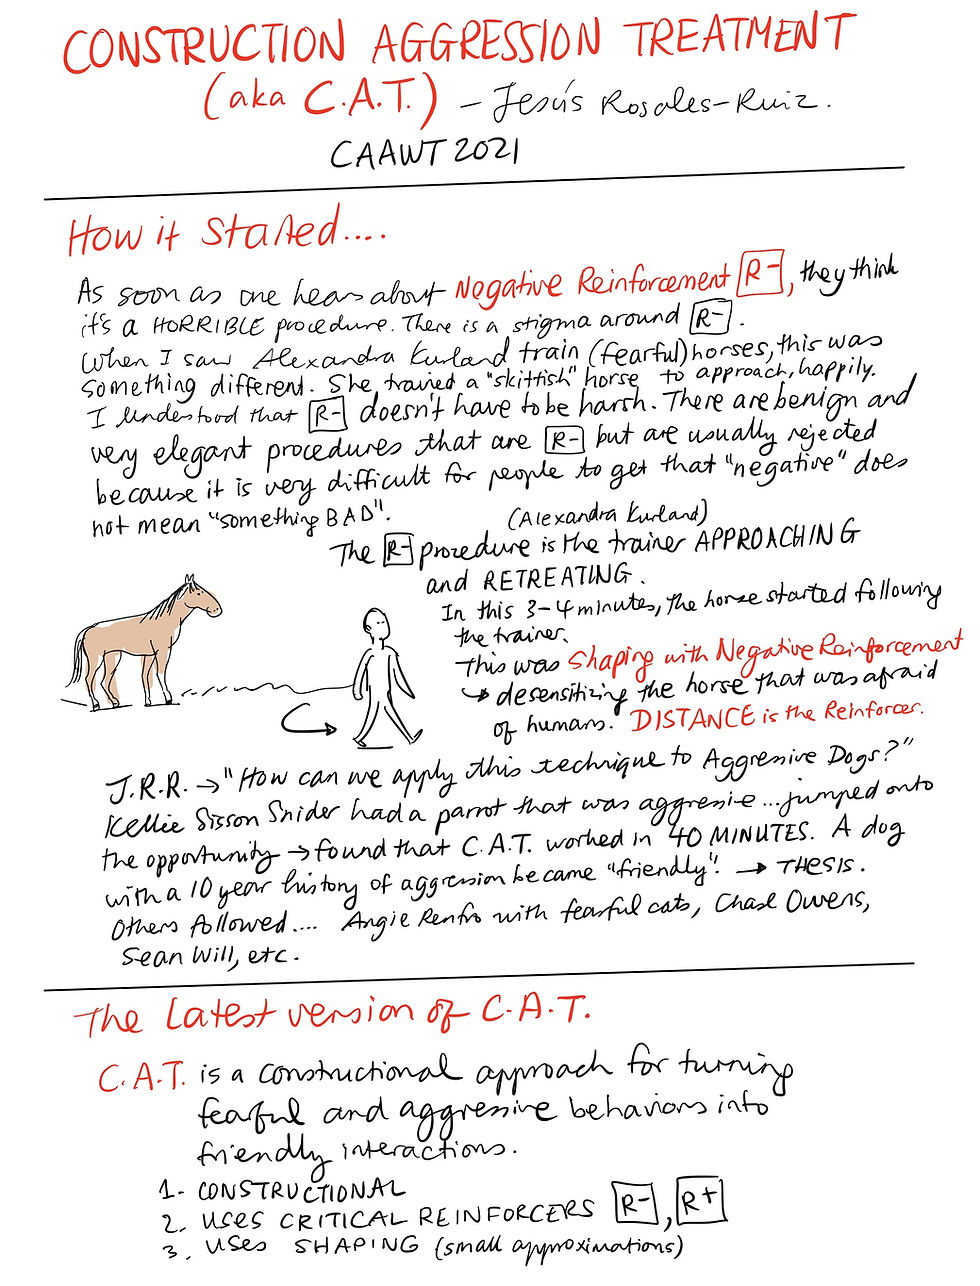 CONSTRUCTION AGGRESSION TREATMENT
(aka C.A.T.) - Jesús Rosales-Ruiz.
CAAWT 2021
How it Started....
As soon as one hears about Negative Reinforcement R-, they think
it's a HORRIBLE procedure. There is a stigma around R-.
When I saw Alexandra Kurland train (fearful) horses, this was
something different. She trained a "skittish" horse to approach, happily.
I understood that R- doesn't have to be harsh. There are benign and
very elegant procedures that are R- but are usually rejected
because it is very difficult for people to get that "negative" does
not mean "something BAD".
(Alexandra Kurland)
The R- procedure is the trainer APPROACHING
and RETREATING.
In this 3-4 minutes, the horse started following
the trainer.
This was Shaping with Negative Reinforcement
↳ desensitizing the horse that was afraid
of humans. DISTANCE is the Reinforcer.
J.R.R. → "How can we apply this technique to Aggressive Dogs?"
Kellie Sisson Snider had a parrot that was aggressive... jumped onto
the opportunity → found that C.A.T. worked in 40 MINUTES. A dog
with a 10 year history of aggression became "friendly". → THESIS.
Others followed.... Angie Renfro with fearful cats, Chase Owens,
Sean Will, etc.
The Latest version of C.A.T.
C.A.T. is a constructional approach for turning
fearful and aggressive behaviors into
friendly interactions.
1- CONSTRUCTIONAL
2. USES CRITICAL REINFORCERS R-, R+
3. USES SHAPING (small approximations)